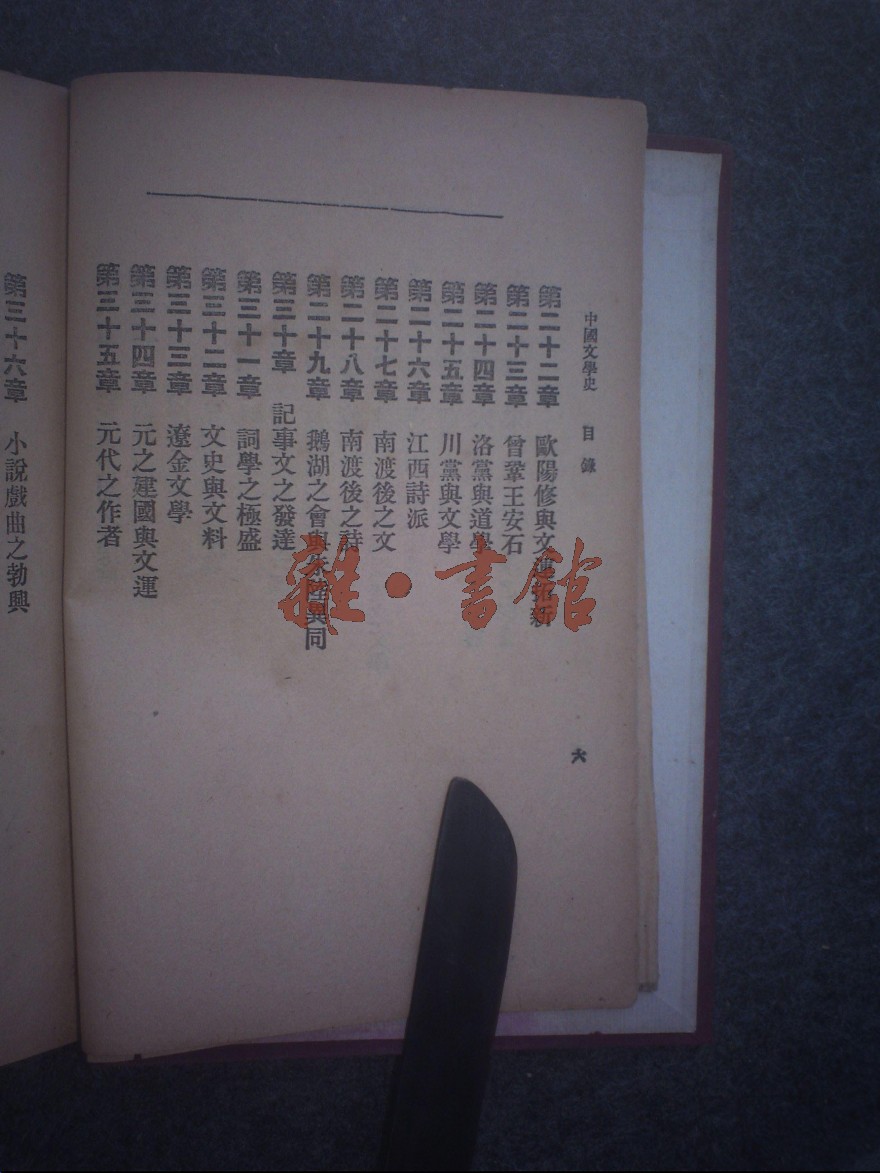 中國文學史 目錄
六
第二十二章 歐陽修與文運更新
第二十三章 曾鞏王安石
第二十四章 洛黨與道學
第二十五章 川黨與文學
第二十六章 江西詩派
第二十七章 南渡後之文
第二十八章 南渡後之詩
第二十九章 鵝湖之會與朱陸異同
第三十章 記事文之發達
第三十一章 詞學之極盛
第三十二章 文史與文料
第三十三章 遼金文學
第三十四章 元之建國與文運
第三十五章 元代之作者
第三十六章 小說戲曲之勃興
雜·書館